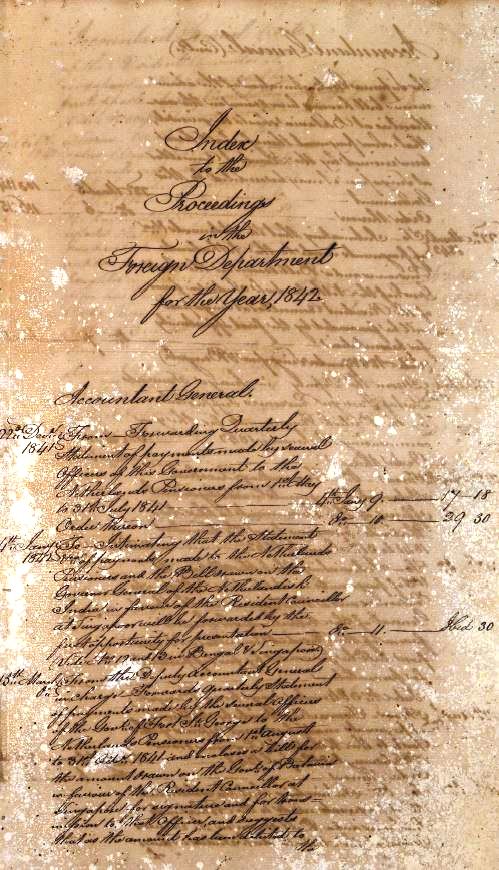 Index
to the
Proceedings
in the
Foreign Department
for the Year, 1842
Accountant General.
From — Forwarding Quarterly
Statement of payments made by several
Officers of this Government to the
Netherlands Pensioners from 1st May
to 31st July 1841 — 4th Jany 9 — 17 — 18
Order thereon — Do 10 — 29 30
To — Intimating that the Statements
of payments made to the Netherlands
Pensioners and the Bill drawn on the
Governor General of the Netherlands
India in favour of the Resident Councillor
at Singapore will be forwarded by the
first opportunity for presentation — Do 11 — Ibid 30
From the Deputy Accountant General
Forwards quarterly Statement
of payments made by the several Officers
of the Govt of Fort St George to the
Netherlands Pensioners from 1st August
to 31st Octr 1841 and encloses a bill for
the amount drawn on the Govt of Batavia
in favour of the Resident Councillor at
Singapore for signature and for trans-
mission to that Officer, and suggests
that as the amount has been debited to
the